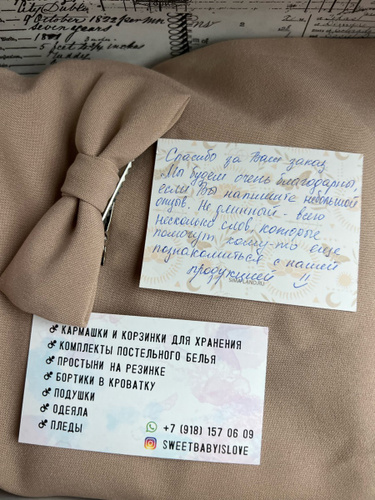 City Dublin
9 October 1822
Seven years
5 feet
Спасибо за Ваш заказ
Мы будем очень благодарны,
если Вы напишите небольшой
отзыв. Не длинный - всего
несколько слов, которые
помогут кому-то еще
познакомиться с нашей
продукцией !!
КАРМАШКИ И КОРЗИНКИ ДЛЯ ХРАНЕНИЯ
КОМПЛЕКТЫ ПОСТЕЛЬНОГО БЕЛЬЯ
ПРОСТЫНИ НА РЕЗИНКЕ
БОРТИКИ В КРОВАТКУ
ПОДУШКИ
ОДЕЯЛА
ПЛЕДЫ
+7 (918) 157 06 09
SWEETBABYISLOVE